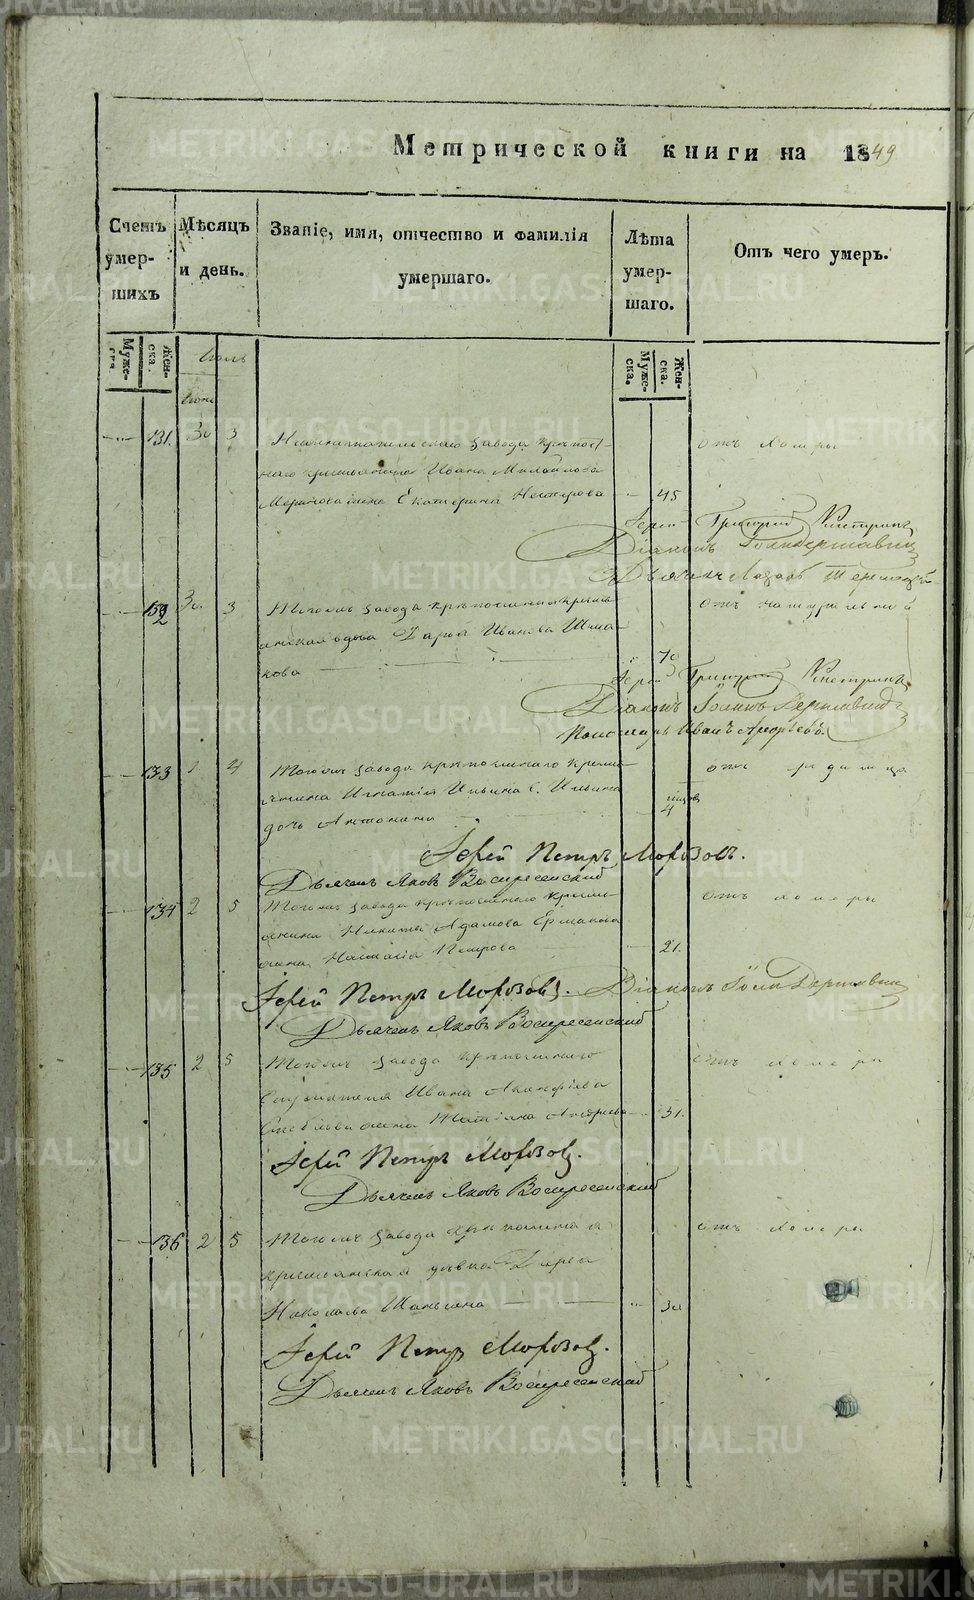 Метрической книги на 1849
Счетъ умер- шихъ
Мѣсяцъ и день.
Званіе, имя, отчество и фамилія умершаго.
Лѣта умер- шаго.
Отъ чего умеръ.
Муже- ска.
Жен- ска.
Июль
Июня
Муже- ска.
Жен- ска.
131. 30 3 завода крѣпос-
наго крестьянина Ивана Михайлова
жена Екатерина Нестерова 45
отъ холеры
Іерей Григорій
Діаконъ
Дьячекъ Лазарь
132 30. 3 Тогожъ завода крѣпостная кресть-
янская вдова Дарья Иванова Шма-
кова 70
отъ натуральной
Іерей Григорій
Діаконъ Іоаннъ Державинъ
Пономарь Иванъ
133 1 4 Тогожъ завода крѣпостнаго кресть-
янина Игнатія Ильина Ильина
дочь Антонина 4
отъ родимца
Іерей Петръ Морозовъ.
Дьячекъ Яковъ Воскресенскій
134 2 5 Тогожъ завода крѣпостнаго кресть-
янина Никиты Адамова Ермакова
жена Настасія Петрова 21.
отъ холеры
Іерей Петръ Морозовъ. Діаконъ Іоан Державинъ
Дьячекъ Яковъ Воскресенскій
135 2 5 Тогожъ завода крѣпостнаго
Служителя Ивана
жена Татіяна 31.
отъ холеры
Іерей Петръ Морозовъ.
Дьячекъ Яковъ Воскресенскій
136 2 5 Тогожъ завода крѣпостная
крестьянская дѣвка Дарья
Николаева 30
отъ холеры
Іерей Петръ Морозовъ.
Дьячекъ Яковъ Воскресенскій
METRIKI.GASO-URAL.RU